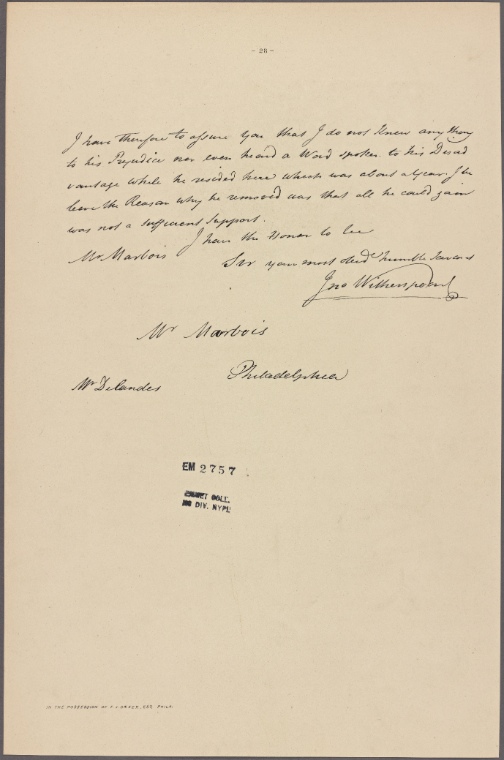 - 28 -
I have therefore to assure you that I do not know any thing
to his Prejudice nor even heard a Word spoken to his Disad
vantage while he resided here which was about a Year. I be
leave the Reason why he removed was that all he could gain
was not a sufficient Support.
I have the Honor to be
Mr Marbois
Sir your most obed. humble Servant
Jno Witherspoon
Mr Marbois
Philadelphia
Mr Delandes
EM 2757
EMMET COLL.
MS DIV. NYPL
IN THE POSSESSION OF F. J. DREER, ESQ. PHILA.